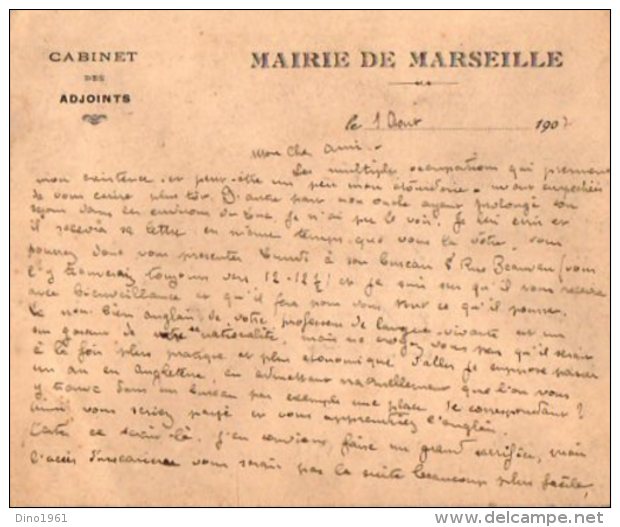 CABINET
DES
ADJOINTS
MAIRIE DE MARSEILLE
le 1 Aout 1907
Mon Cher Ami.
Les multiples occupations qui prennent
mon existence et peut-être un peu mon étourderie m'ont empêché
de vous écrire plus tôt. D'autre part mon oncle ayant prolongé son
séjour dans les environs de je n'ai pu le voir. Je lui écris et
il recevra sa lettre en même temps que vous la vôtre. Vous
pourrez donc vous présenter lundi à son bureau 8 Rue Beauvau (vous
l'y trouverez toujours vers 12-12½) et je suis sûr qu'il vous recevra
avec bienveillance et qu'il fera pour vous tout ce qu'il pourra.
Le nom bien anglais de votre professeur de langue vivante est un
sûr garant de nationalité, mais ne croyez vous pas qu'il serait
à la fois plus pratique et plus économique d'aller je suppose passer
un an en Angleterre, en admettant naturellement que l'on vous
y trouve dans un bureau par exemple une place de correspondant ?
Ainsi vous seriez payé et vous apprendriez l'anglais.
ce serait là, j'en conviens, faire un grand sacrifice, mais
vous serait par la suite beaucoup plus facile,
Dino1961